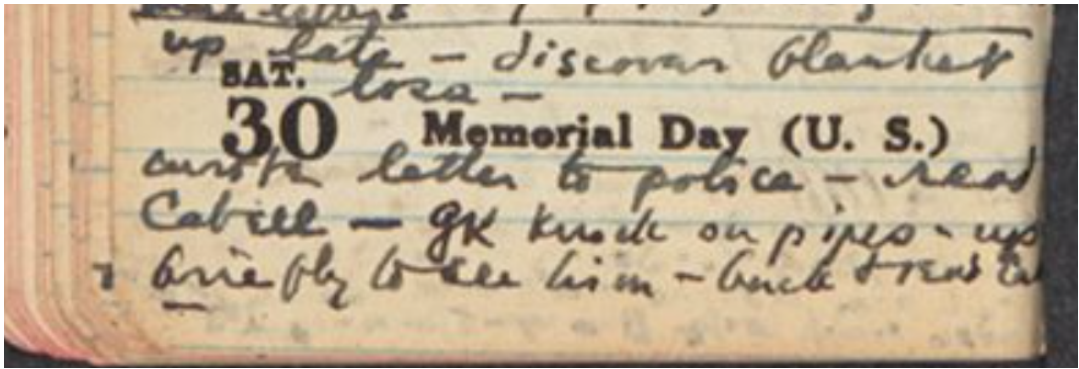 up late — discover blanket
SAT. loss —
30 Memorial Day (U. S.)
write letter to police — read
Cabell — GK knock on pipes - up
briefly to see him — back & read